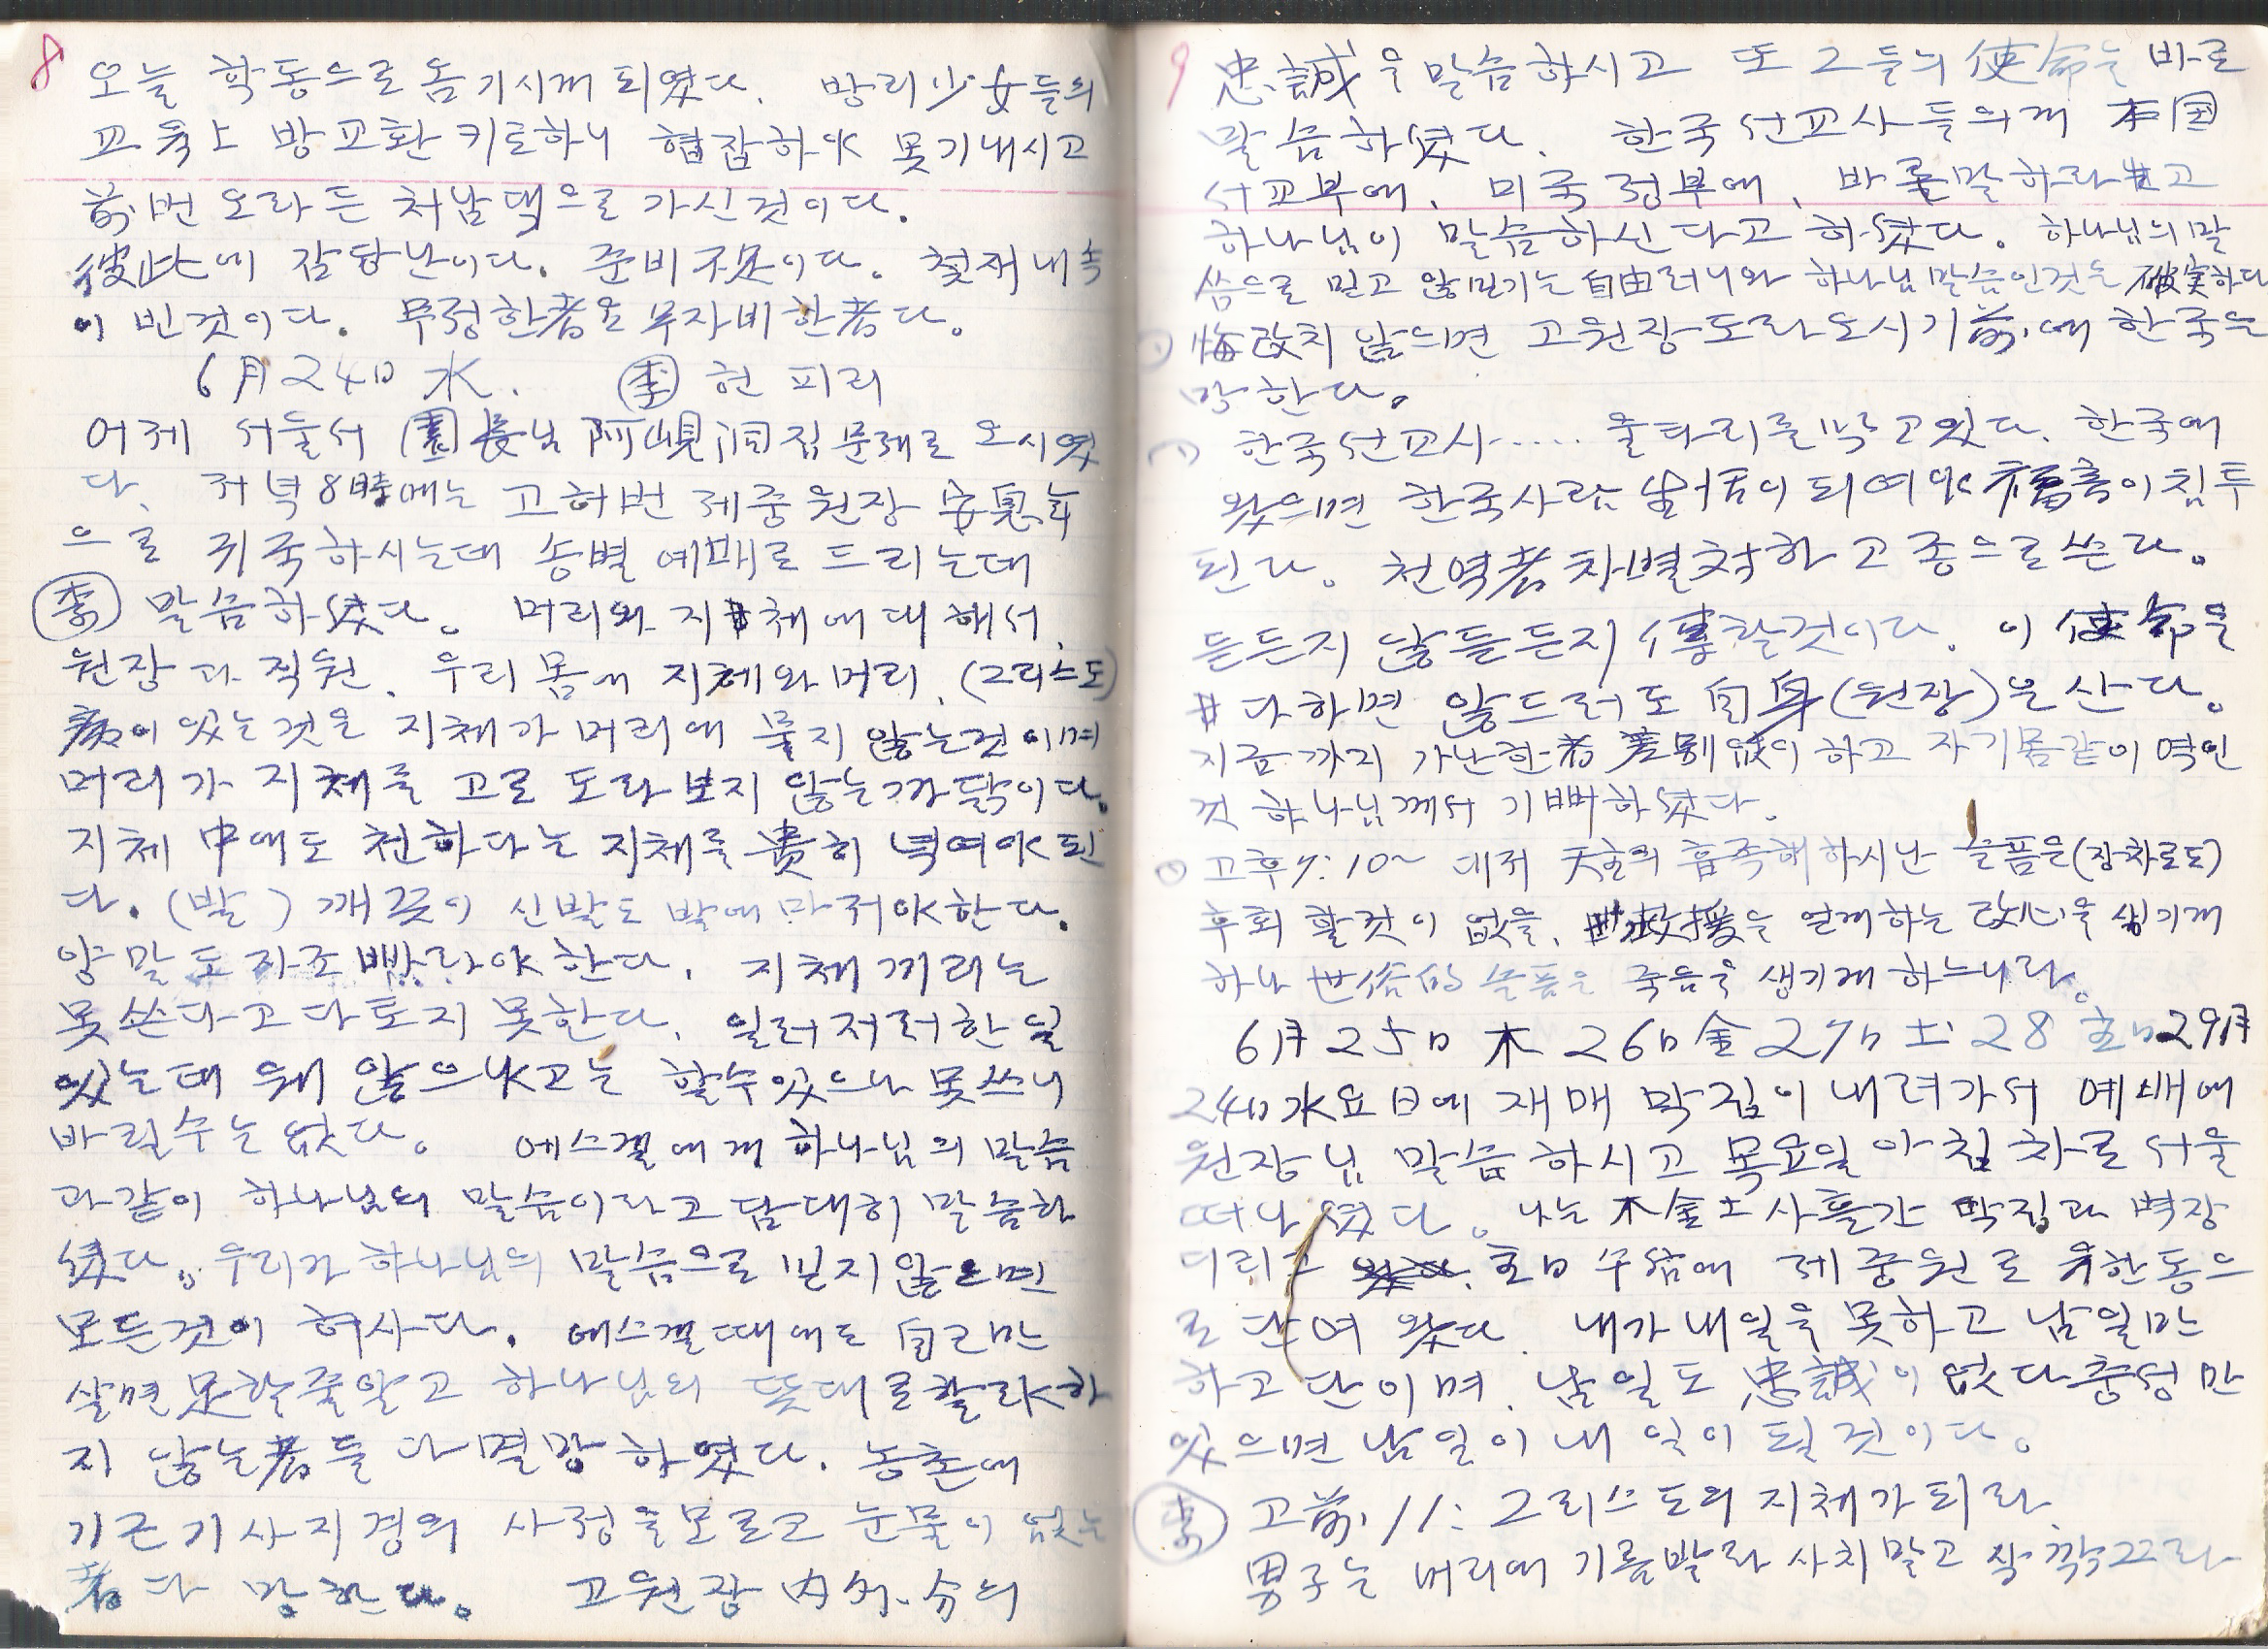 8
오늘 학동으로 옴기시게 되였다. 방리 少女들의
교육上 방교환 키로하니 협잡하야 못기내시고
前번 오라든 처남댁으로 가신것이다.
彼此에 감당난이다. 준비不足이다. 첫재 내속
이 빈것이다. 무정한者은 무자비한者다.
6月 24日 水. 李 현 피리
어제 서울서 園長님 阿峴洞집 문제로 오시였
다. 저녁 8時에는 고허번 제중원장 安息年
으로 귀국하시는대 송별 예배로 드리는대
李 말슴하셨다. 머리와 지체에 대해서.
원장과 직원. 우리 몸에 지체와 머리. (그리스도)
病이 있는것은 지체가 머리에 붙지 않는것이며
머리가 지체를 고로 도라보지 않는 까닭이다.
지체 中에도 천하다는 지체를 貴히 녁여야 된
다. (발) 깨끗이 신발도 발에 마저야한다.
양말도 자조 빠라야 한다. 지체끼리는
못쓴다고 다토지 못한다. 일러저러한 일
있는대 왜 않으냐고는 할수있으나 못쓰니
바릴수는 없다. 에스겔에게 하나님의 말슴
과같이 하나님의 말슴이라고 담대히 말슴하
셨다. 우리가 하나님의 말슴으로 믿지 않으면
모든것이 허사다. 에스겔때에도 自己만
살면 足할줄알고 하나님의 뜻대로 할라하
지 않는者들 다 멸망하였다. 농촌에
기근기사지경의 사정을 모르고 눈물이 없는
者 다 망한다. 고원장 内外分의
9
忠誠을 말슴하시고 또 그들의 使命을 바로
말슴하셨다. 한국 선교사들의게 本国
선교부에, 미국 정부에, 바로 말하라고
하나님이 말슴하신다고 하셨다. 하나님의 말
씀으로 믿고 않믿기는 自由러니와 하나님 말슴인것은 確実하다
悔改치 않으면 고원장 도라오시기 前에 한국은
망한다.
한국선교사..... 울타리를 막고있다. 한국에
왔으면 한국사람 남어古이 되여야 福音이 침투
된다. 천역者 차별対하고 종으로 쓴다.
듣든지 않듣든지 傳할것이다. 이 使命을
다하면 않드러도 自身(원장)은 산다.
지금까지 가난한者 差別없이 하고 자기몸같이 역인
것 하나님께서 기뻐하셨다.
고후 7:10~ 대저 天主의 흡족해 하시난 슬픔은(장차로도)
후회할것이 없을, 救援을 얻게하는 改心을 생기게
하나 世俗的 슬픔은 죽음을 생기게 하느니라.
6月 25日 木 26日 金 27日 土 28 主日 29月
24日 水요日에 재매 막집이 내려가서 예배에
원장님 말슴하시고 목요일 아침차로 서울
떠나셨다. 나는 木金土 사흘간 막집과 벽장
디리고 主日 수삼에 제중원로 유한동으
로 단여왔다. 내가 내일을 못하고 남일만
하고 단이며. 남일도 忠誠이 없다 충성만
있으면 남일이 내 일이 될것이다.
李 고前 11: 그리스도의 지체가 되라.
男子는 머리에 기름발라 사치말고 싹 깎그라